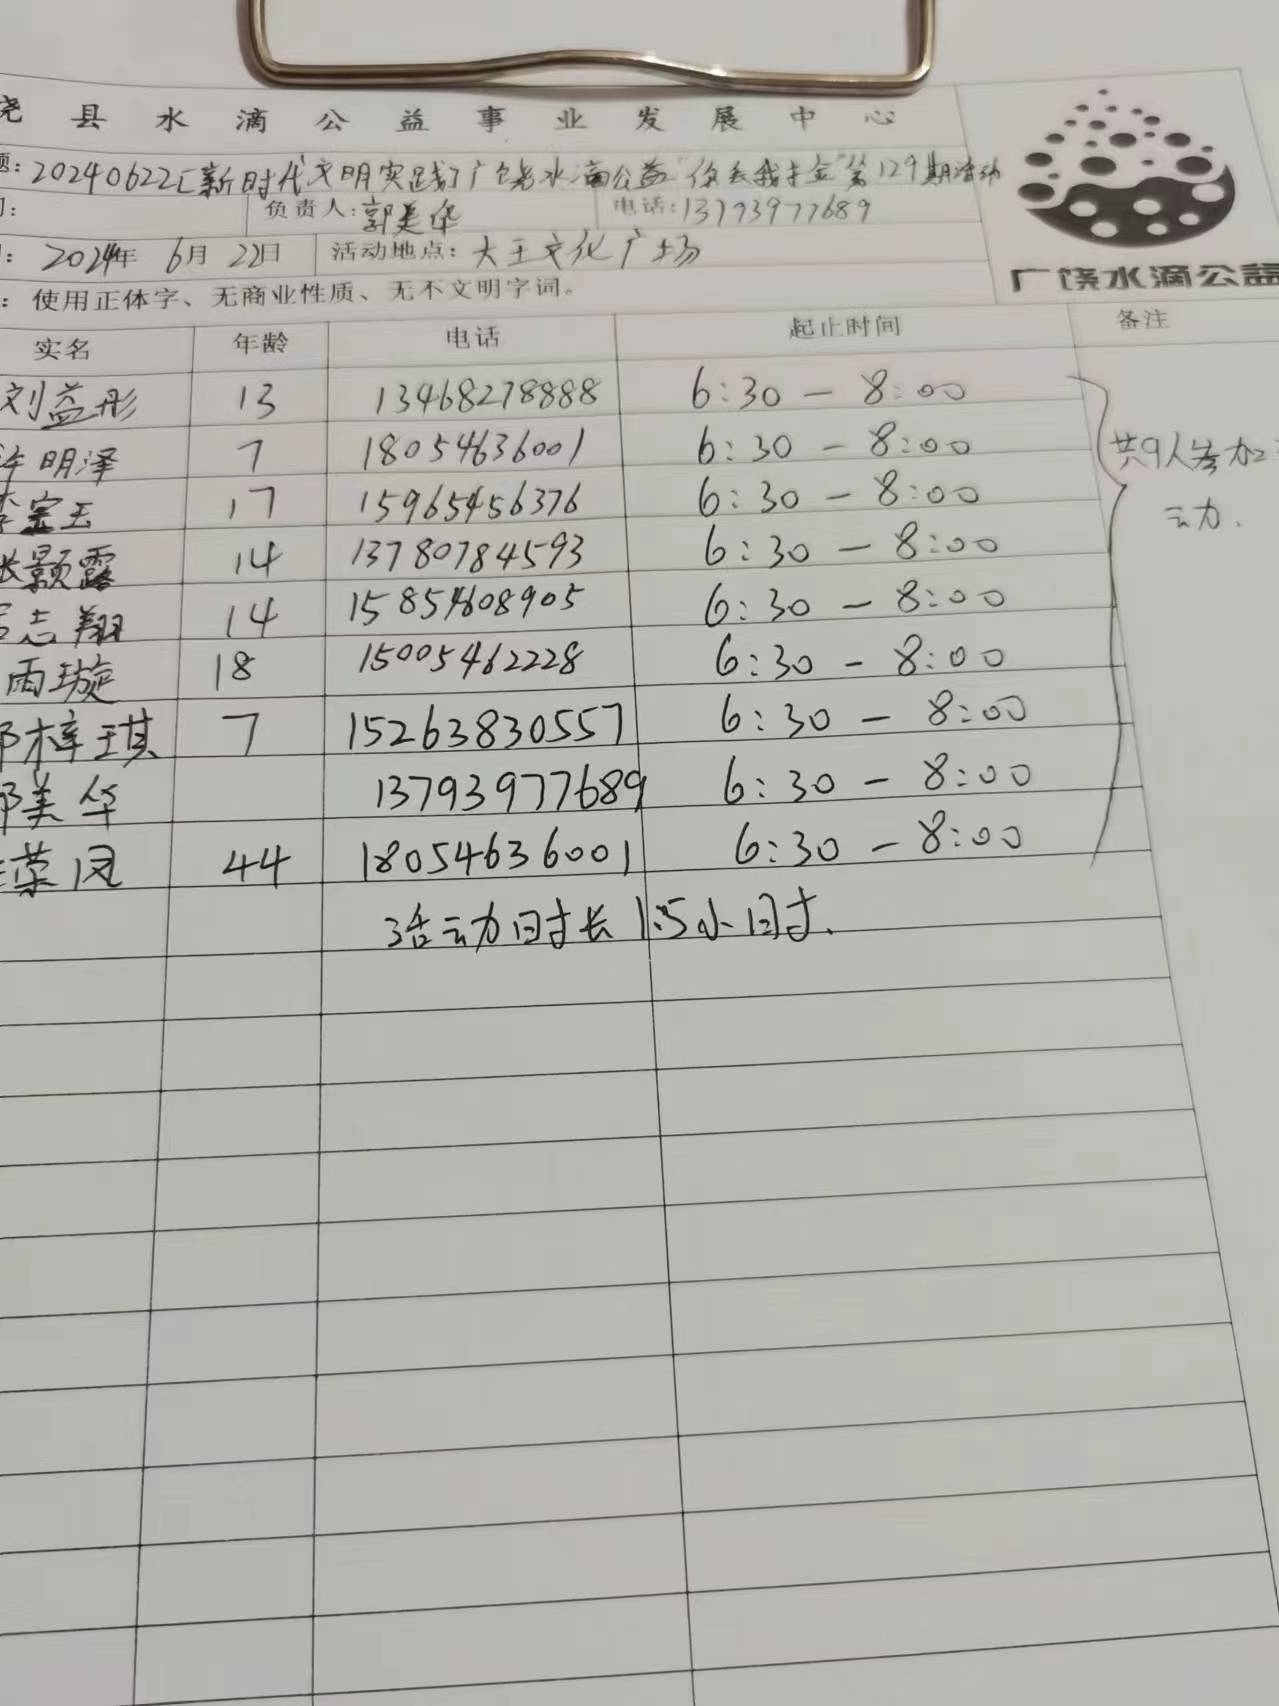 饶县水滴公益事业发展中心
题:20240622[新时代文明实践]广饶水滴公益"你丢我捡"第129期活动
负责人:郭美华 电话:13793977689
2024年6月22日 活动地点:大王文化广场
:使用正体字、无商业性质、无不文明字词。
广饶水滴公益
实名 年龄 电话 起止时间 备注
刘益彤 13 13468278888 6:30-8:00
许明泽 7 18054636001 6:30-8:00 共9人参加
李宗玉 17 15965456376 6:30-8:00 动.
张颢露 14 13780784593 6:30-8:00
志翔 14 15854608905 6:30-8:00
雨璇 18 15005462228 6:30-8:00
郭梓琪 7 15263830557 6:30-8:00
郭美华 13793977689 6:30-8:00
荣凤 44 18054636001 6:30-8:00
活动时长1.5小时.